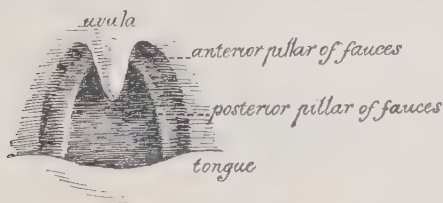 uvula
anterior pillar of fauces
posterior pillar of fauces
tongue